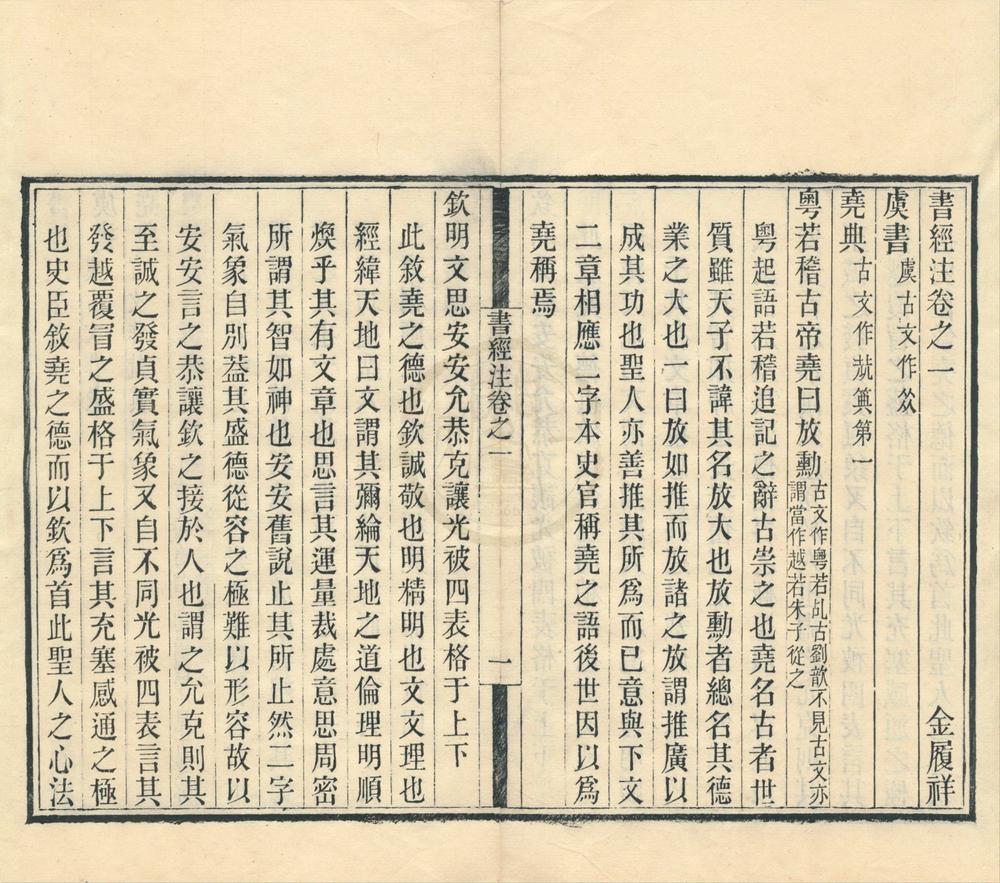 書經注卷之一 金履祥
虞書 虞古文作𠔃
堯典 古文作𡘲𥮏第一
粵若稽古帝堯曰放勳 古文作粵若乩古劉歆不見古文亦
謂當作越若朱子從之
粵起語若稽追記之辭古崇之也堯名古者世
質雖天子不諱其名放大也放勳者總名其德
業之大也一曰放如推而放諸之放謂推廣以
成其功也聖人亦善推其所爲而已意與下文
二章相應二字本史官稱堯之語後世因以爲
堯稱焉
書經注卷之一 一
欽明文思安安允恭克讓光被四表格于上下
此敘堯之德也欽誠敬也明精明也文文理也
經緯天地曰文謂其彌綸天地之道倫理明順
煥乎其有文章也思言其運量裁處意思周密
所謂其智如神也安安舊說止其所止然二字
氣象自別蓋其盛德從容之極難以形容故以
安安言之恭讓欽之接於人也謂之允克則其
至誠之發貞實氣象又自不同光被四表言其
發越覆冒之盛格于上下言其充塞感通之極
也史臣敘堯之德而以欽爲首此聖人之心法